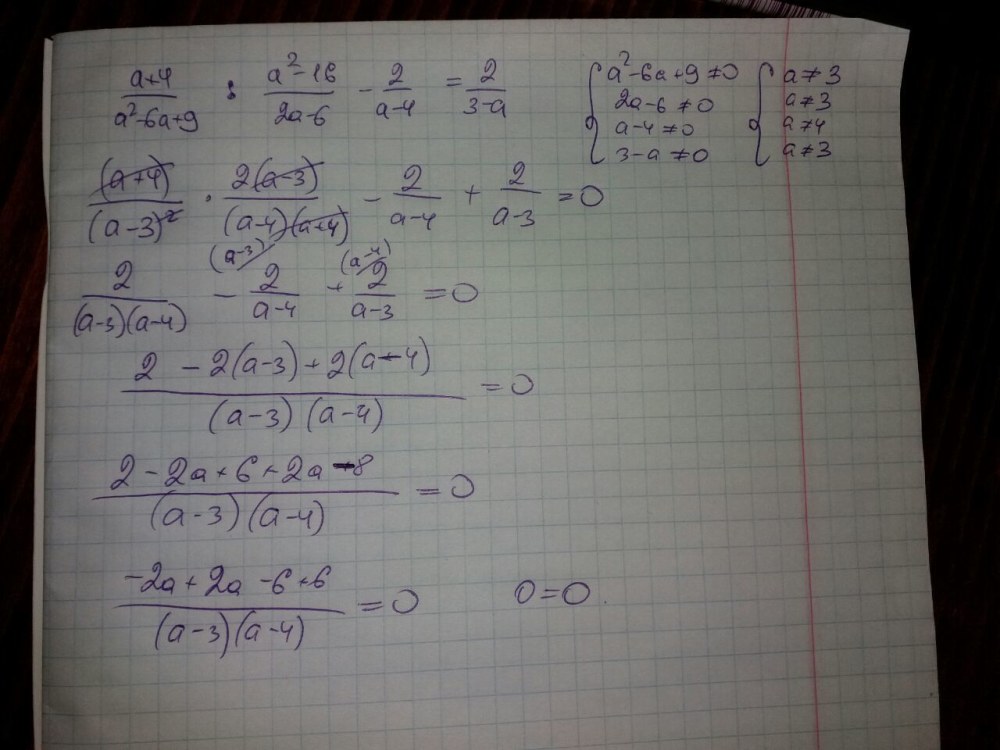 (a+4)/(a²-6a+9) : (a²-16)/(2a-6) - 2/(a-4) = 2/(3-a) { a²-6a+9≠0 { a≠3
2a-6≠0 a≠3
a-4≠0 a≠4
3-a≠0 a≠3
(a+4)/(a-3)² · 2(a-3)/((a-4)(a+4)) - 2/(a-4) + 2/(a-3) = 0
(a-3) (a-4)
2/((a-3)(a-4)) - 2/(a-4) + 2/(a-3) = 0
(2 - 2(a-3) + 2(a-4))/((a-3)(a-4)) = 0
(2 - 2a + 6 + 2a - 8)/((a-3)(a-4)) = 0
(-2a + 2a - 6 + 6)/((a-3)(a-4)) = 0 0=0.